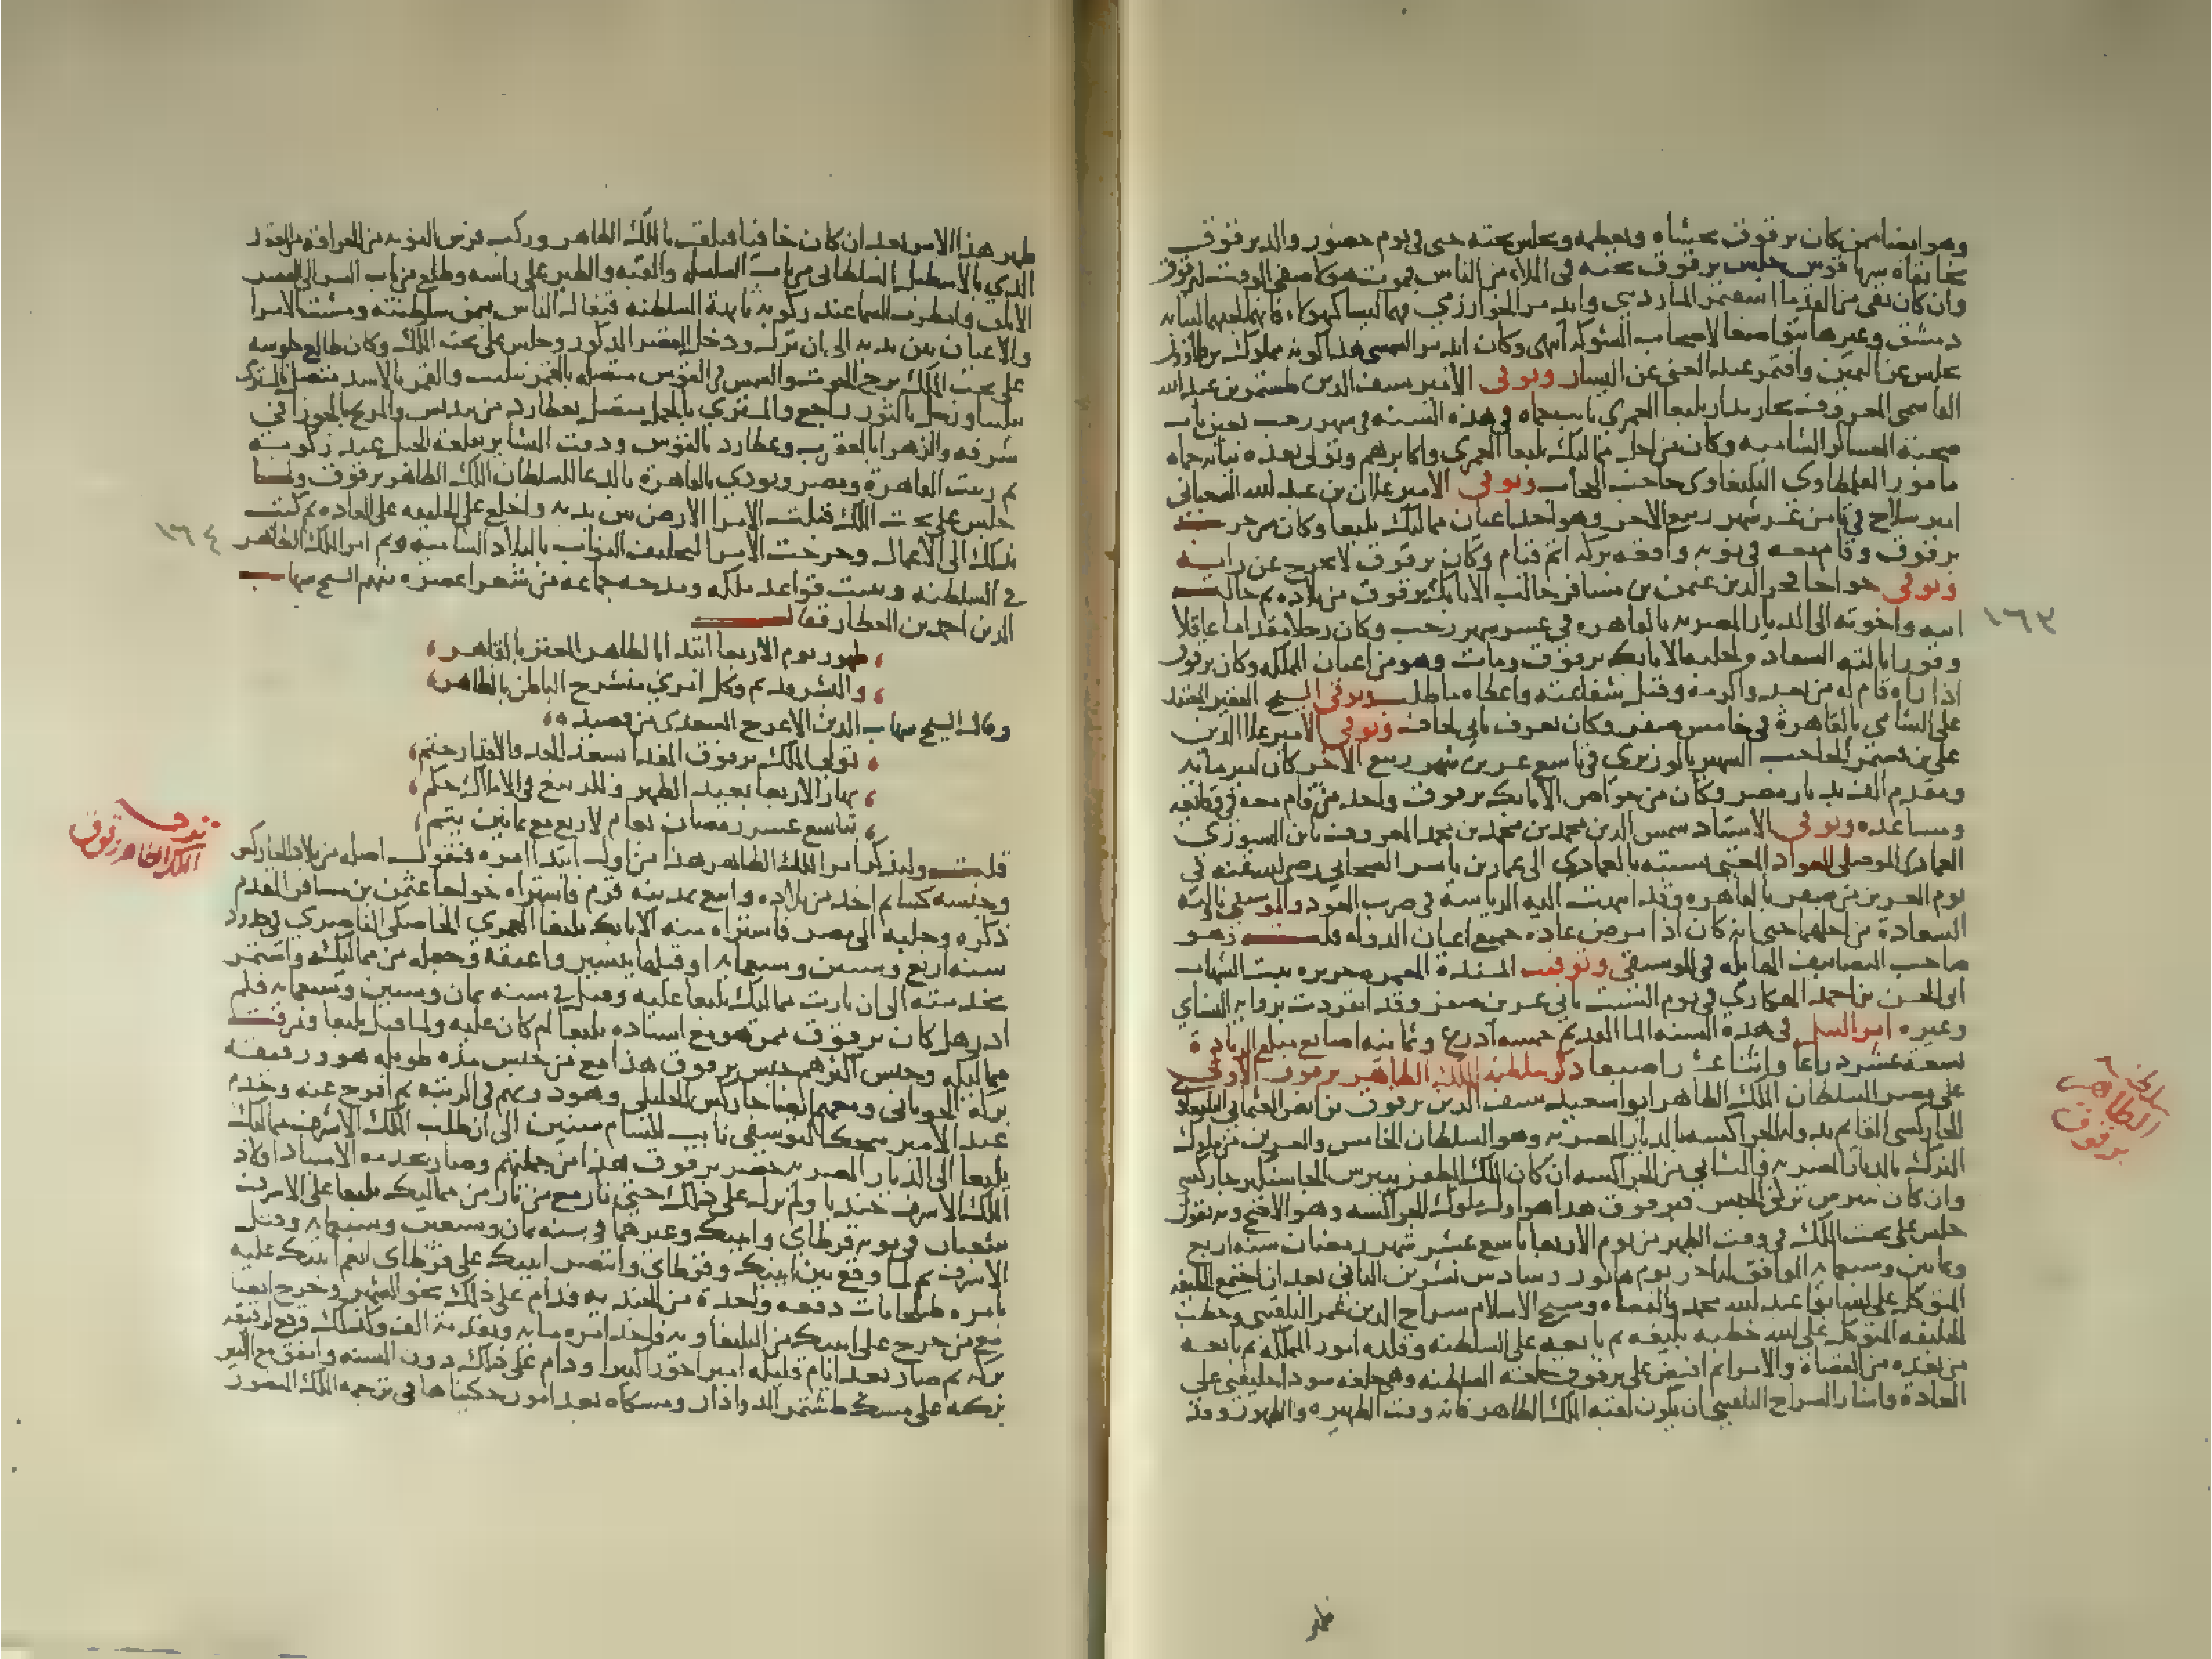 وهو ايضا ممن كان برقوق يخشاه ويعظمه ويجلس تحته حتى في يوم حضور والد برقوق
بخانقاة سرياقوس جلس برقوق تحته في الملاء من الناس
وان كان بقي من القدما اشقتمر المارديني وايدمر الخوارزمي فهما ليسا كهؤلاء فانهما لهما نيابة
دمشق وغيرها
يجلس عن اليمين واقتمر عبد الغني عن اليسار وتوفى الامير سيف الدين طشتمر بن عبد الله
القاسمي المعروف بخازندار يلبغا العمري نايب حماه في هذه السنة في شهر رجب
صحبة العساكر الشاميه وكان من اجل مماليك يلبغا العمري واكابرهم وتولى بعده نيابة حماه
مامور القلمطاوي اليلبغاوي حاجب الحجاب وتوفى الامير علان بن عبد الله الشعباني
امير سلاح في ثامن عشر شهر ربيع الاخر وهو احد اعيان مماليك يلبغا وكان من حزب
برقوق وقام معه في نوبة واقعة بركه اتم قيام وكان برقوق لا يخرج عن رايه
وتوفى خواجا فخر الدين عثمن بن مسافر جالب الاتابك برقوق من بلاده ثم جالب
ابيه واخوته الى الديار المصريه بالقاهره في شهر رجب وكان رجلا مقداما عاقلا
وقورا نالته السعاده لجلبه الاتابك برقوق ومات وهو من اعيان المملكه وكان برقوق
اذا راه قام له من بعد واكرمه وقبل شفاعته واعطاه ما طلب وتوفى الشيخ الفقير المعتقد
على الشامي بالقاهرة في خامس صفر وكان يعرف بابي لحاف وتوفي الامير علا الدين
على بن قشتمر الحاجب الشهير بالوزيري في تاسع عشرين شهر ربيع الاخر كان امير مايه
ومقدم الف بديار مصر وكان من خواص الاتابك برقوق واحد من قام معه في وقايعه
ومساعده وتوفي الاستاد شمس الدين محمد بن محمد بن محمد المعروف بابن السوري
العمادي الموصلي العواد المغني نسبته بالعمادي الى عمار بن ياسر الصحابي
يوم العشرين من صفر بالقاهره وقد انتهت اليه الرياسة في ضرب العود والموسيقى ونالته
السعادة من اجلهما حتى انه كان اذا مرض عاده جميع اعيان الدوله قلت وهو
صاحب التصانيف الهايله في الموسيقى وتوفيت المسندة المعمره جويريه بنت الشهاب
ابي الحسن بن احمد الهكاري في يوم السبت ثاني عشرين صفر وقد انفردت برواية النساي
وغيره امر النيل في هذه السنه الما القديم خمسة اذرع وثمانيه اصابع مبلغ الزيادة
تسعة عشر ذراعا واثنا عشر اصبعا ذكر سلطنه الملك الظاهر برقوق الاولى
على مصر السلطان الملك الظاهر ابو سعيد سيف الدين برقوق بن انص العثماني اليلبغاوي
الجاركسي القايم بدولة الجراكسه بالديار المصريه وهو السلطان الخامس والعشرين من ملوك
الترك بالديار المصريه والثاني من الجراكسه ان كان الملك المظفر بيبرس الجاشنكير جاركسي
وان كان بيبرس تركي الجنس فبرقوق هذا هو اول ملوك الجراكسه وهو الاصح وبه نقول
جلس على تخت الملك في وقت الظهر من يوم الاربعا تاسع عشر شهر رمضان سنه اربع
وثمانين وسبعمايه الموافق لاخر يوم هاتور وسادس تشرين الثاني بعد ان اجتمع الخليفه
المتوكل على الله ابو عبد الله محمد والقضاه وشيخ الاسلام سراج الدين عمر البلقيني وخطب
الخليفه المتوكل على الله خطبه بليغه ثم بايعه على السلطنه وقلده امور المملكه ثم بايعه
من بعده من القضاة والامرا ثم افيض على برقوق خلعه السلطنه وهي خلعه سودا خليفتي على
العادة واشار السراج البلقيني ان يكون لقبه الملك الظاهر فانه وقت الظهيره والظهور وقد
١٦٣
سلطنة
الظاهر
برقوق
ظهر
ظهر هذا الامر بعد ان كان خافيا فتلقب بالملك الظاهر وركب فرس النوبه من
الذي بالاسطبل السلطاني من باب السلسله والقبه والطير على راسه وطلع من باب السر الى القصر
الابلق وامطرت السما عند ركوبه بابهة السلطنه فتفاءل الناس بيمن سلطنته ومشت الامرا
والاعيان بين يديه الى ان نزل ودخل القصر المذكور وجلس على تخت الملك وكان طالع جلوسه
على تخت الملك برج الحوت والشمس في القوس متصله بالقمر تثليث والقمر بالاسد متصل بالمشتري
تثليثا وزحل بالثور راجع والمشتري بالحمل متصل بعطارد من تسديس والمريخ بالجوزا في
شرفه والزهرا بالعقرب وعطارد بالقوس ودقت البشاير بقلعة الجبل عند ركوبه
ثم زينت القاهرة ومصر ونودي بالقاهرة بالدعا للسلطان الملك الظاهر برقوق ولما
جلس على تخت الملك قبلت الامرا الارض بين يديه واخلع على الخليفه على العاده ثم كتب
بذلك الى الاعمال وخرجت الامرا لتحليف النواب بالبلاد الشاميه وتم امر الملك الظاهر
في السلطنه وثبتت قواعد ملكه ومدحه جماعه من شعرا عصره منهم الشيخ شهاب
الدين احمد بن العطار فقال
ظهور يوم الاربعا ابتدا بالظاهر المعتز بالقاهر
والبشر قد تم وكل امرئ منشرح الباطن بالظاهر
وقال الشيخ شهاب الدين الاعرج السعدي من قصيده
تولى الملك برقوق المفدا بسعد الجد والاقدار حتم
نهار الاربعا بعيد الظهر وللتربيع في الاملاك حكم
بتاسع عشر رمضان بعام لاربع مع ثمانين يتم
قلت ولنذكر امر الملك الظاهر هذا من اول ابتدا امره فنقول اصله من بلاد الجاركس
وجنسه كسا ثم اخذ من بلاده وابيع بمدينه قرم فاشتراه خواجا عثمن بن مسافر المقدم
ذكره وجلبه الى مصر فاشتراه منه الاتابك يلبغا العمري الخاصكي الناصري في حدود
سنه اربع وستين وسبعمايه او قبلها بيسير واعتقه وجعله من مماليكه واستمر
بخدمته الى ان ثارت مماليك يلبغا عليه وقتل في سنه ثمان وستين وسبعمايه فلم
ادر هل كان برقوق ممن هو مع استاده يلبغا ام كان عليه ولما قتل يلبغا وتمزقت
مماليكه وحبس اكثرهم حبس برقوق هذا مع من حبس مده طويله هو ورفيقه
بركه الجوباني ومعهما ايضا جاركس الخليلي وهو دونهم في الرتبه ثم افرج عنه وخدم
عند الامير منجك اليوسفي نايب الشام سنين الى ان طلب الملك الاشرف مماليك
يلبغا الى الديار المصريه حضر برقوق هذا من جملتهم وصار بخدمه الاسياد اولاد
الملك الاشرف جنديا ولم يزل على ذلك حتى ثار مع من ثار من مماليك يلبغا على الاشرف
شعبان في نوبه قرطاي واينبك وغيرهما في سنه ثمان وسبعين وسبعمايه وقتل
الاشرف ثم لما وقع بين اينبك وقرطاي وانتصر اينبك على قرطاي انعم اينبك عليه
بامره طبلخانات دفعه واحدة من الجنديه فدام على ذلك نحو الشهر وخرج ايضا
مع من خرج على اينبك من اليلبغاويه فاخذ امره مايه وتقدمه الف وكذلك وقع لرفيقه
بركه ثم صار بعد ايام قليله امير اخور كبيرا ودام على ذلك دون السنه واتفق مع الامير
بركه على مسك طشتمر الدوادار ومسكاه بعد امور حكيناها في ترجمه الملك المنصور
١٦٤
الملك الظاهر برقوق